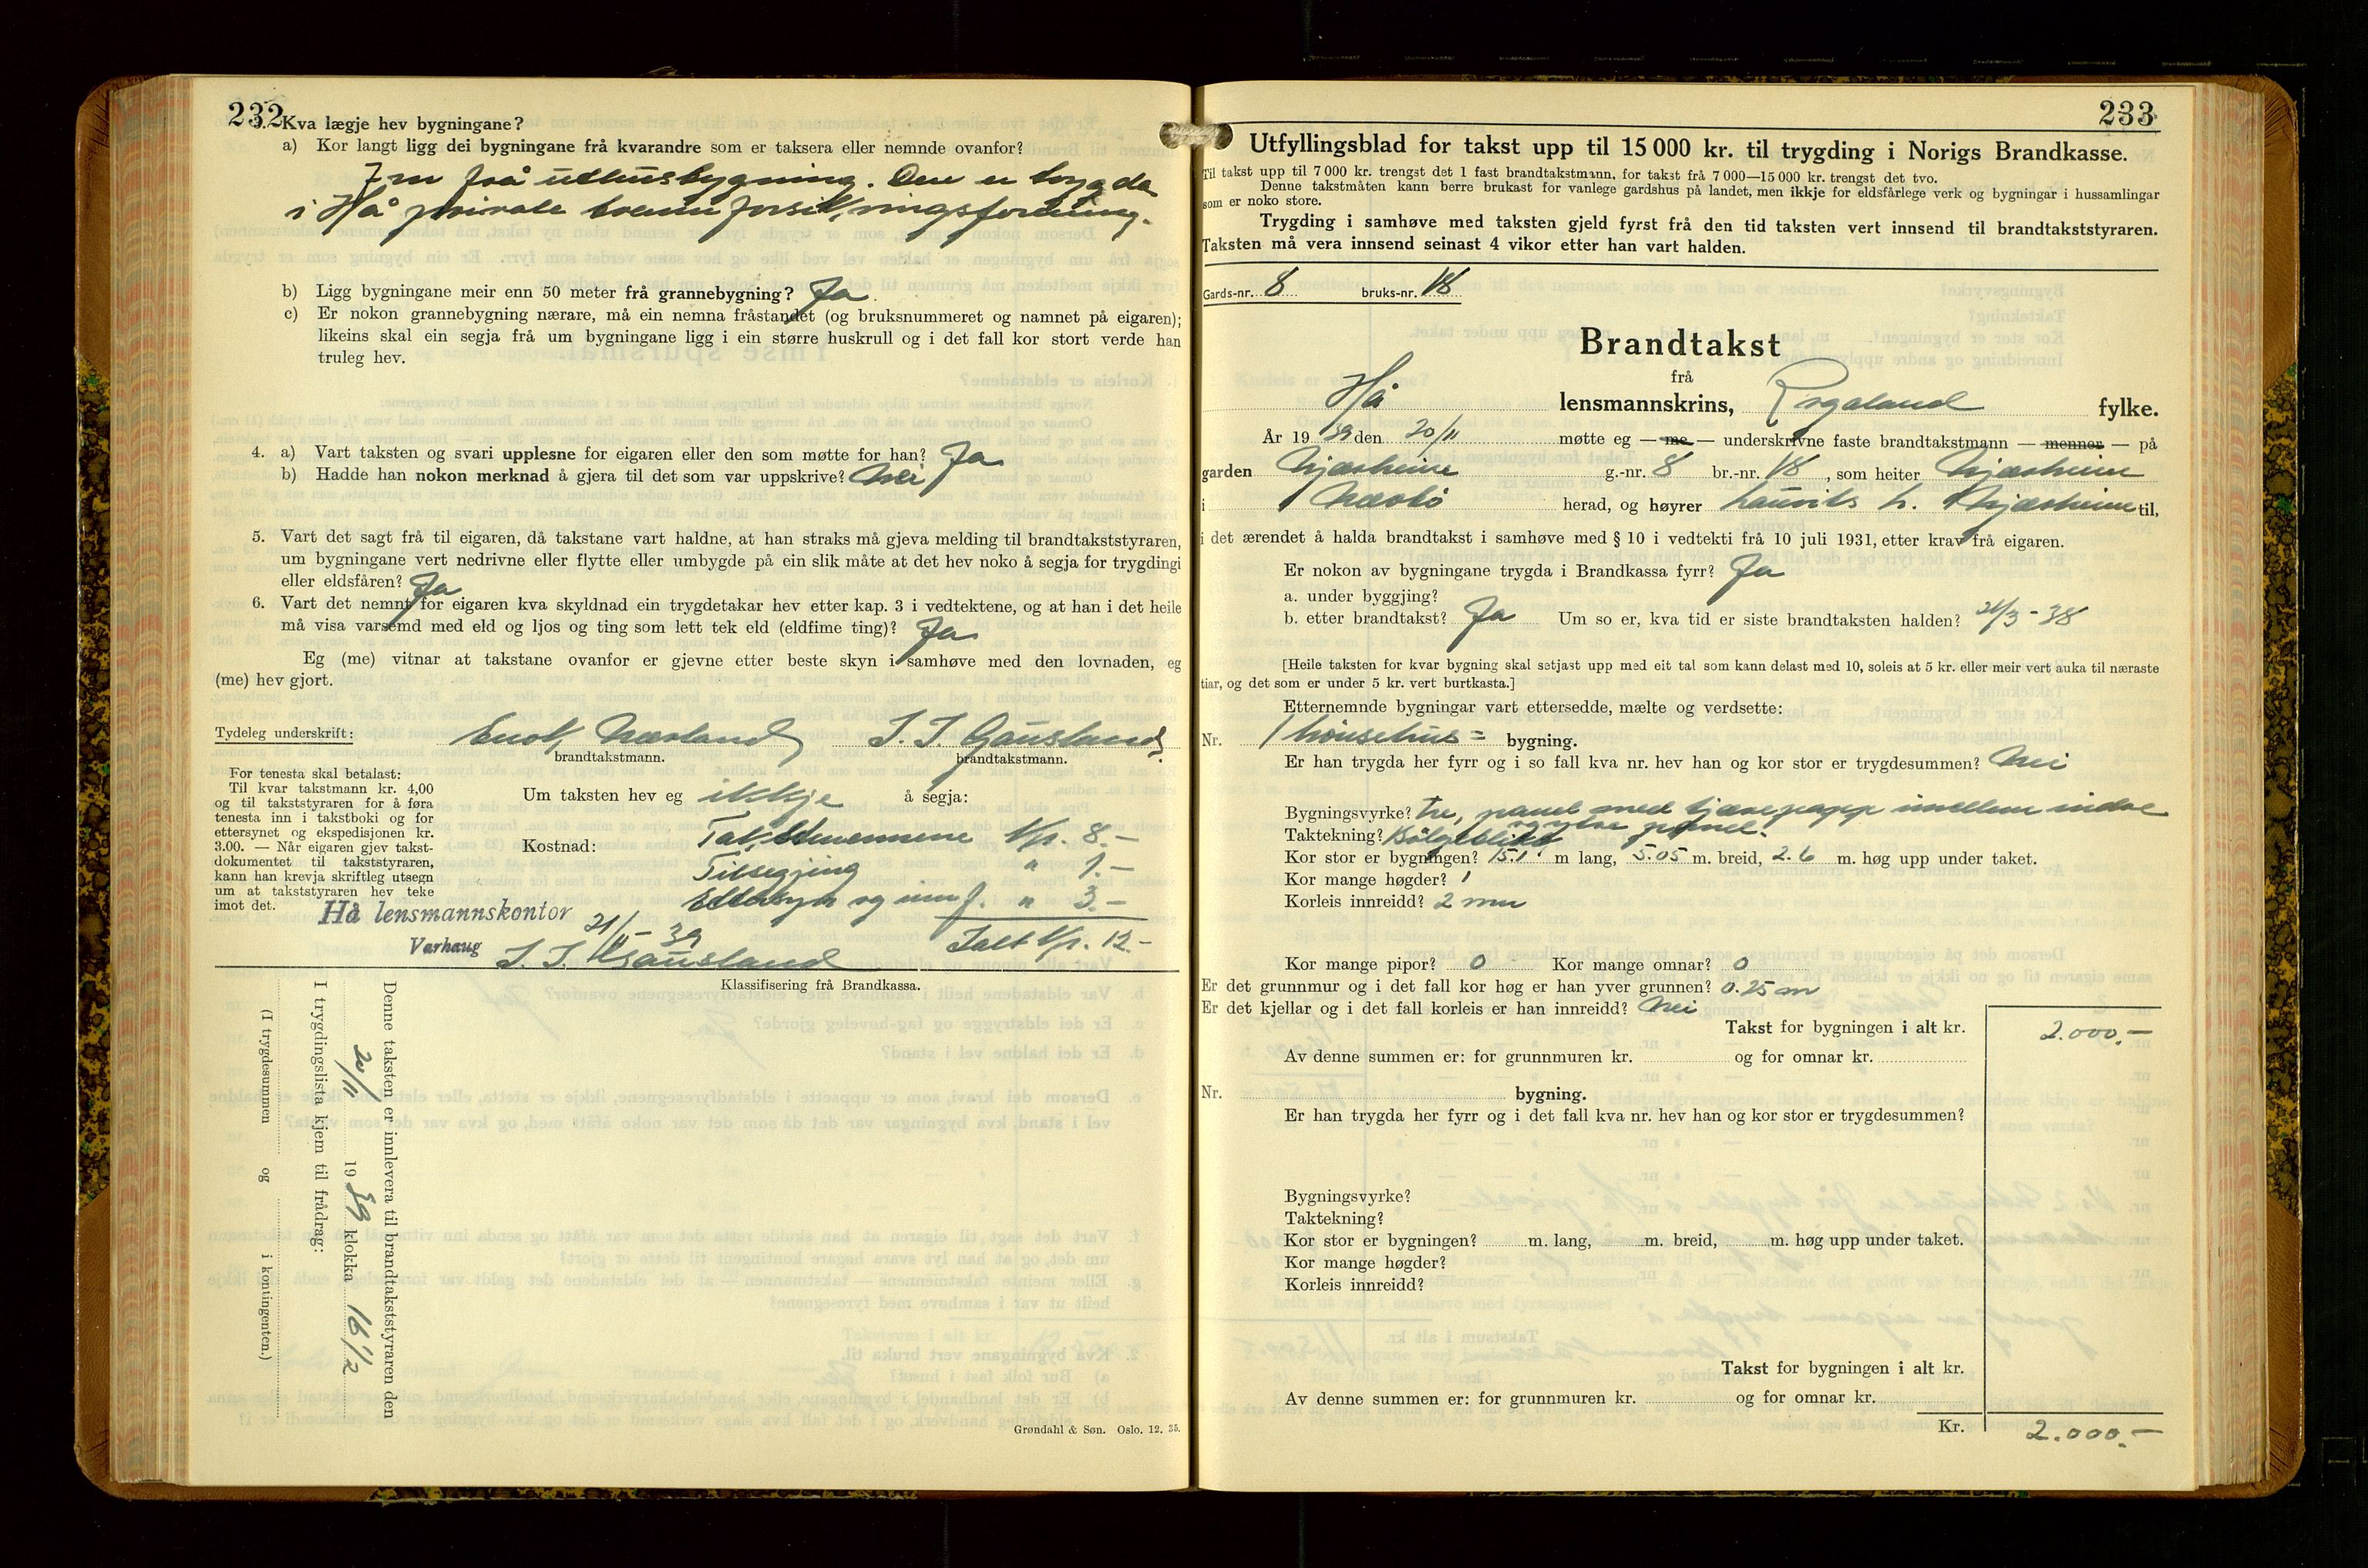 232
3. Kva lægje hev bygningane?
a) Kor langt ligg dei bygningane frå kvarandre som er taksera eller nemnde ovanfor?
7 m frå uthusbygning. Den er trygda
i Hå private brannforsikringsforening.
b) Ligg bygningane meir enn 50 meter frå grannebygning? Ja
c) Er nokon grannebygning nærare, må ein nemna fråstandet (og bruksnummeret og namnet på eigaren);
likeins skal ein segja frå um bygningane ligg i ein større huskrull og i det fall kor stort verde han
truleg hev.
4. a) Vart taksten og svari upplesne for eigaren eller den som møtte for han? Ja
b) Hadde han nokon merknad å gjera til det som var uppskrive? Nei
5. Vart det sagt frå til eigaren, då takstane vart haldne, at han straks må gjeva melding til brandtakststyraren,
um bygningane vert nedrivne eller flytte eller umbygde på ein slik måte at det hev noko å segja for trygdingi
eller eldsfåren? Ja
6. Vart det nemnt for eigaren kva skyldnad ein trygdetakar hev etter kap. 3 i vedtektene, og at han i det heile
må visa varsemd med eld og ljos og ting som lett tek eld (eldfime ting)? Ja
Eg (me) vitnar at takstane ovanfor er gjevne etter beste skyn i samhøve med den lovnaden, eg
(me) hev gjort.
Tydeleg underskrift: Enok Nærland J. J. Gausland
brandtakstmann. brandtakstmann.
For tenesta skal betalast:
Til kvar takstmann kr. 4,00
og til takststyraren for å føra
tenesta inn i takstboki og for
ettersynet og ekspedisjonen kr.
3.00. — Når eigaren gjev takst-
dokumentet til takststyraren,
kann han krevja skriftleg utsegn
um at takststyraren hev teke
imot det.
Um taksten hev eg ikkje å segja:
Kostnad: Takstmennene Kr. 8.-
Tilsegjing " 1.-
Ettersyn og innf. " 3.-
Ialt Kr. 12.-
Hå lensmannskontor
Varhaug 21/11 - 39
J. J. Gausland
Klassifisering frå Brandkassa.
Denne taksten er innlevera til brandtakststyraren den
20/11 1939 klokka 16 1/2
I trygdingslista kjem til frådrag:
(I trygdesummen og i kontingenten.)
Grøndahl & Søn. Oslo. 12. 35.
233
Utfyllingsblad for takst upp til 15 000 kr. til trygding i Norigs Brandkasse.
Til takst upp til 7 000 kr. trengst det 1 fast brandtakstmann, for takst frå 7 000—15 000 kr. trengst det tvo.
Denne takstmåten kann berre brukast for vanlege gardshus på landet, men ikkje for eldsfårlege verk og bygningar i hussamlingar
som er noko store.
Trygding i samhøve med taksten gjeld fyrst frå den tid taksten vert innsend til brandtakststyraren.
Taksten må vera innsend seinast 4 vikor etter han vart halden.
Gards-nr. 8 bruks-nr. 18
Brandtakst
frå
Hå lensmannskrins, Rogaland fylke.
År 1939 den 20/11 møtte eg — me — underskrivne faste brandtakstmann — menner — på
garden Njærheim g.-nr. 8 br.-nr. 18, som heiter Njærheim
i Nærbø herad, og høyrer Laurits L. Njærheim til,
i det ærendet å halda brandtakst i samhøve med § 10 i vedtekti frå 10 juli 1931, etter krav frå eigaren.
Er nokon av bygningane trygda i Brandkassa fyrr? Ja
a. under byggjing?
b. etter brandtakst? Ja Um so er, kva tid er siste brandtaksten halden? 21/3 - 38
[Heile taksten for kvar bygning skal setjast upp med eit tal som kann delast med 10, soleis at 5 kr. eller meir vert auka til næraste
tiar, og det som er under 5 kr. vert burtkasta.]
Etternemnde bygningar vart ettersedde, mælte og verdsette:
Nr. 1 hønsehus = bygning.
Er han trygda her fyrr og i so fall kva nr. hev han og kor stor er trygdesummen? Nei
Bygningsvyrke? tre, panel med tjærepapp imellem indre
og ytre panel.
Taktekning? Bølgeblikk
Kor stor er bygningen? 15.1 m lang, 5.05 m. breid, 2.6 m. høg upp under taket.
Kor mange høgder? 1
Korleis innreidd? 2 rum
Kor mange pipor? 0 Kor mange omnar? 0
Er det grunnmur og i det fall kor høg er han yver grunnen? 0.25 m
Er det kjellar og i det fall korleis er han innreidd? Nei
Takst for bygningen i alt kr. 2.000.—
Av denne summen er: for grunnmuren kr. og for omnar kr.
Nr. bygning.
Er han trygda her fyrr og i det fall kva nr. hev han og kor stor er trygdesummen?
Bygningsvyrke?
Taktekning?
Kor stor er bygningen? m. lang, m. breid, m. høg upp under taket.
Kor mange høgder?
Korleis innreidd?
Takst for bygningen i alt kr.
Av denne summen er: for grunnmuren kr. og for omnar kr.
Kr. 2.000.—